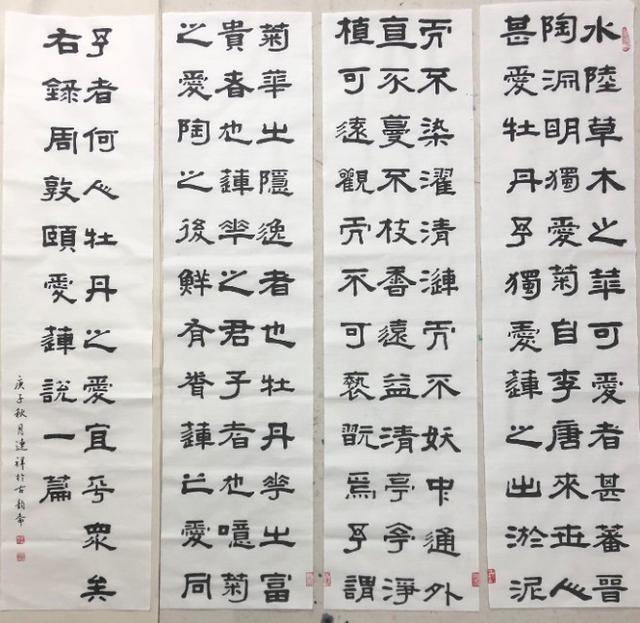 水陸草木之華可愛者甚蕃晉
陶淵明獨愛菊自李唐來世人
甚愛牡丹予獨愛蓮之出淤泥
而不染濯清漣而不妖中通外
直不蔓不枝香遠益清亭亭淨
植可遠觀而不可褻翫焉予謂
菊華之隱逸者也牡丹華之富
貴者也蓮華之君子者也噫菊
之愛陶之後鮮有聞蓮之愛同
予者何人牡丹之愛宜乎眾矣
右錄周敦頤愛蓮說一篇
庚子秋月連祥於古韻齋